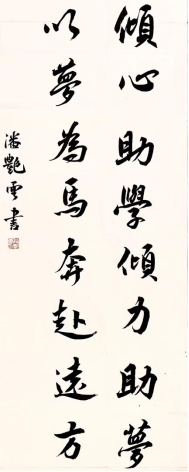 傾心助學傾力助夢
以夢為馬奔赴遠方
潘艷雲書